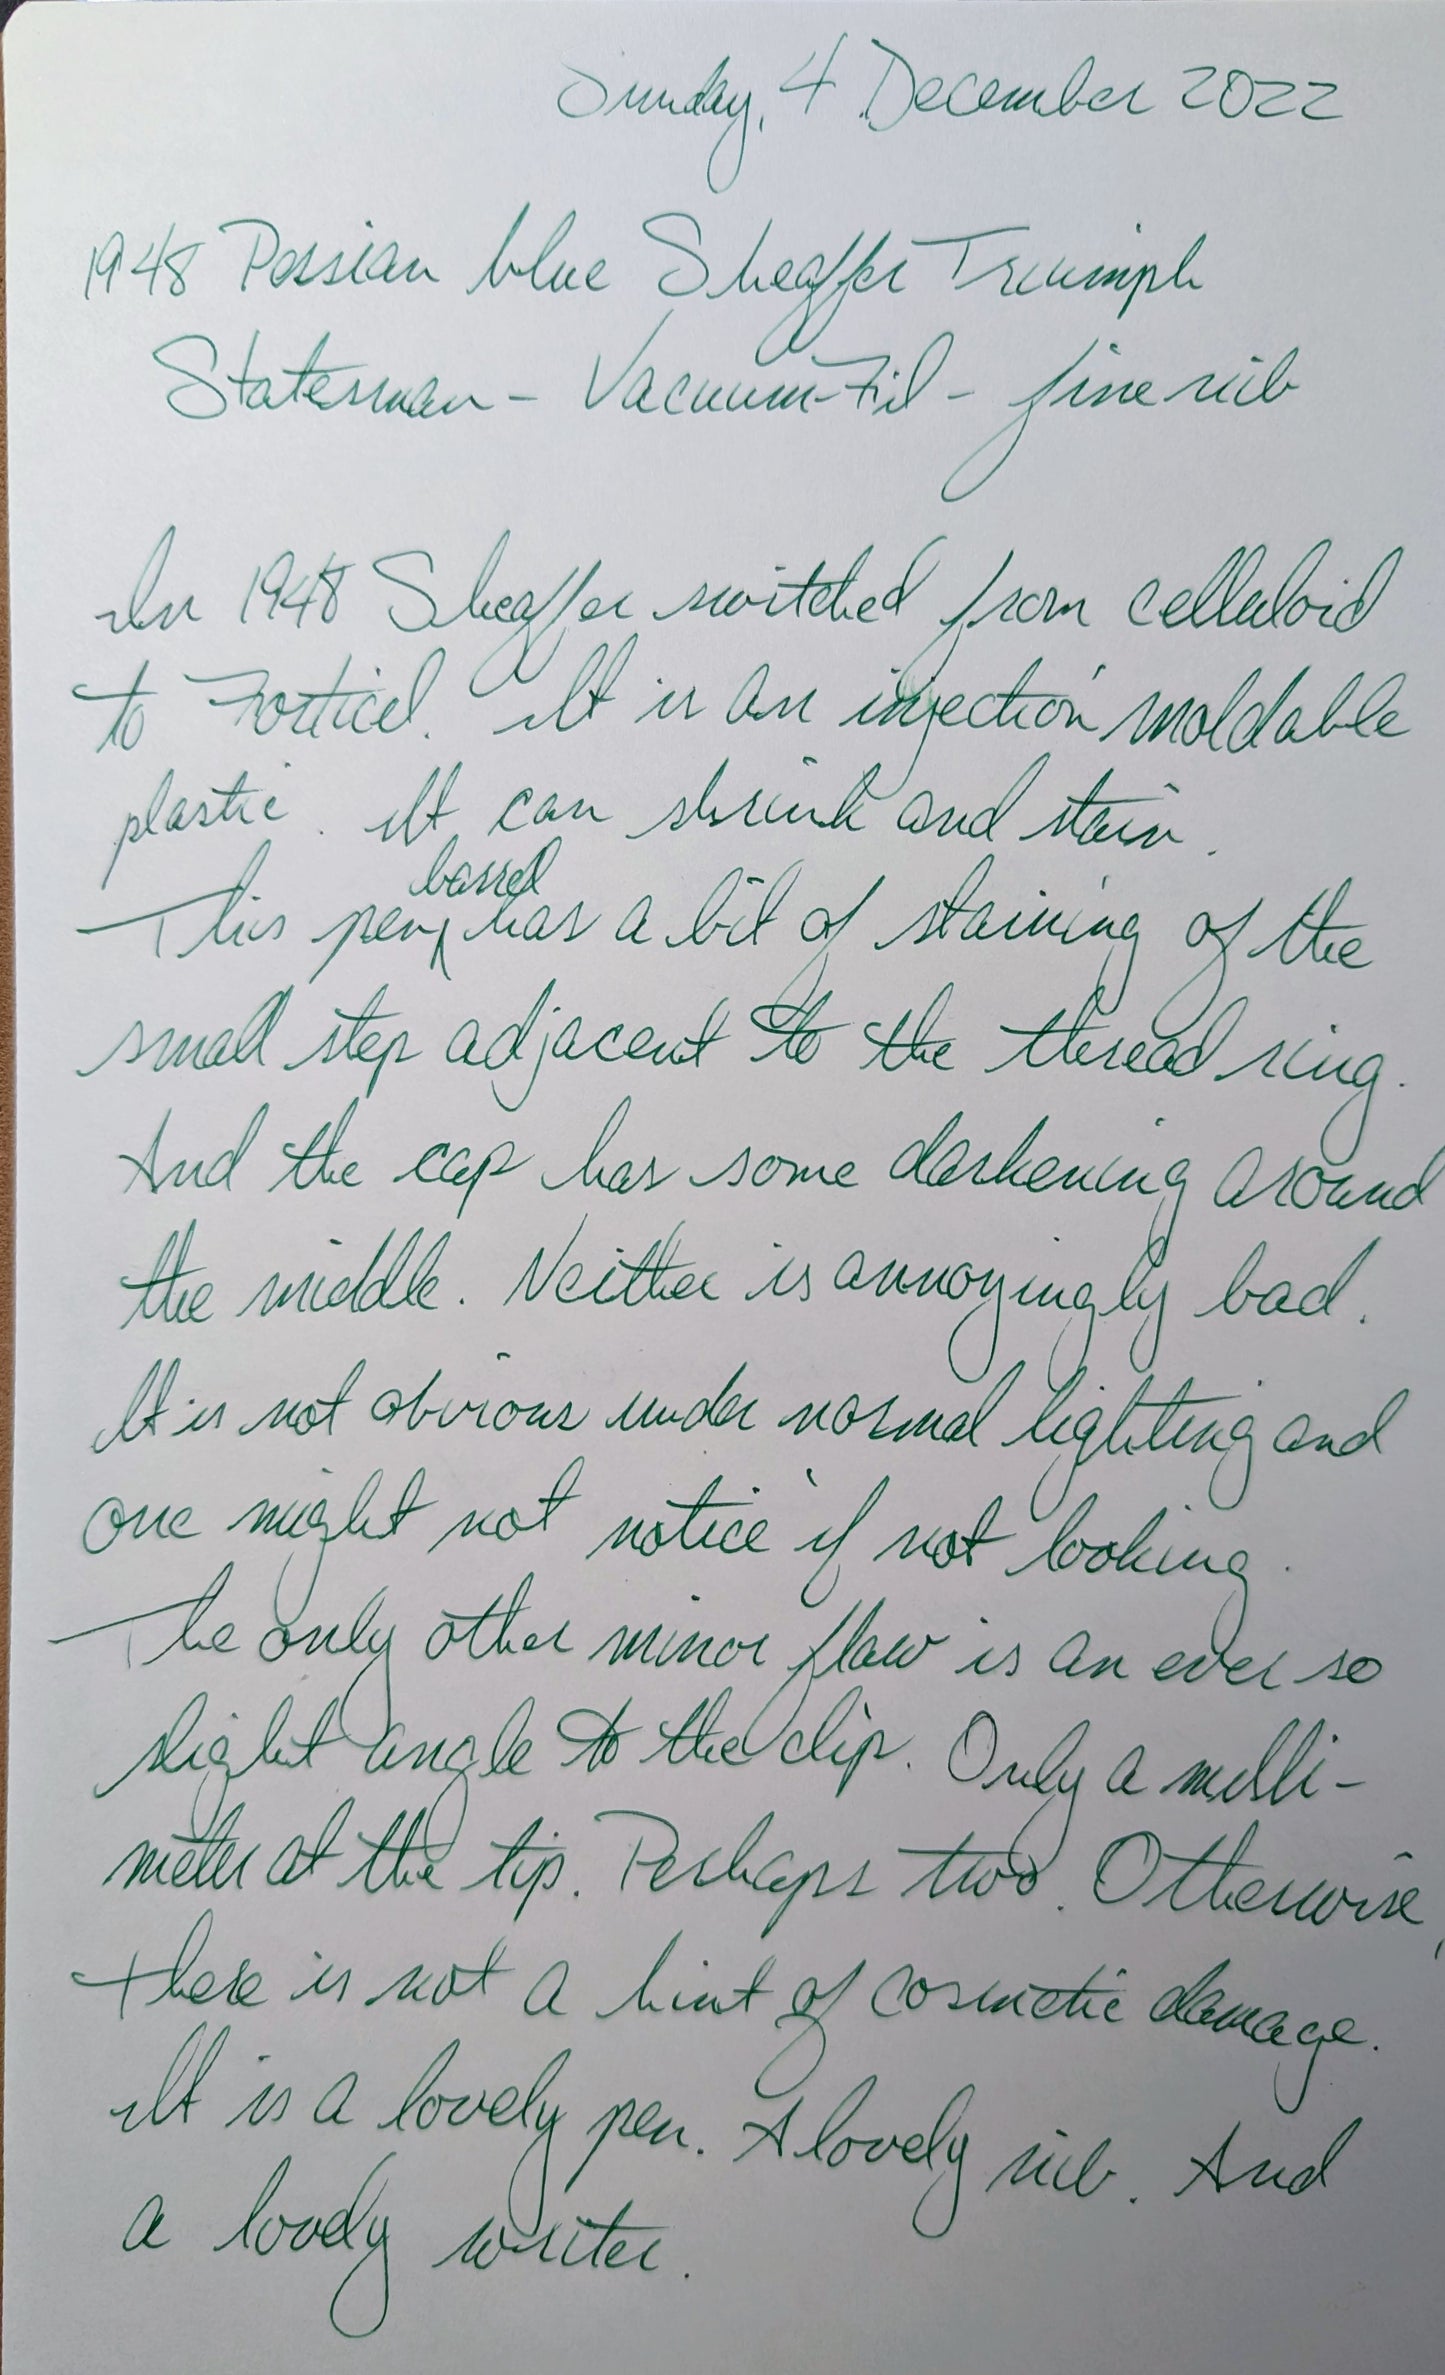 Sunday, 4 December 2022
1948 Persian blue Sheaffer Triumph
Statesman – Vacuum-Fil – fine nib
In 1948 Sheaffer switched from celluloid
to Forticel. It is an injection moldable
plastic. It can shrink and stain.
This pen barrel has a bit of staining of the
small step adjacent to the thread ring.
And the cap has some darkening around
the middle. Neither is annoyingly bad.
It is not obvious under normal lighting and
one might not notice if not looking.
The only other minor flaw is an ever so
slight angle to the clip. Only a milli-
meter at the tip. Perhaps two. Otherwise,
there is not a hint of cosmetic damage.
It is a lovely pen. A lovely nib. And
a lovely writer.